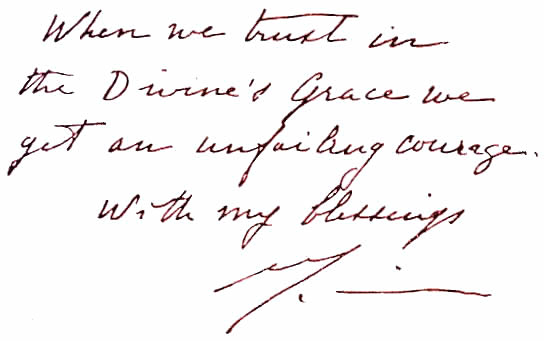 When we trust in
the Divine's Grace we
get an unfailing courage.
With my blessings